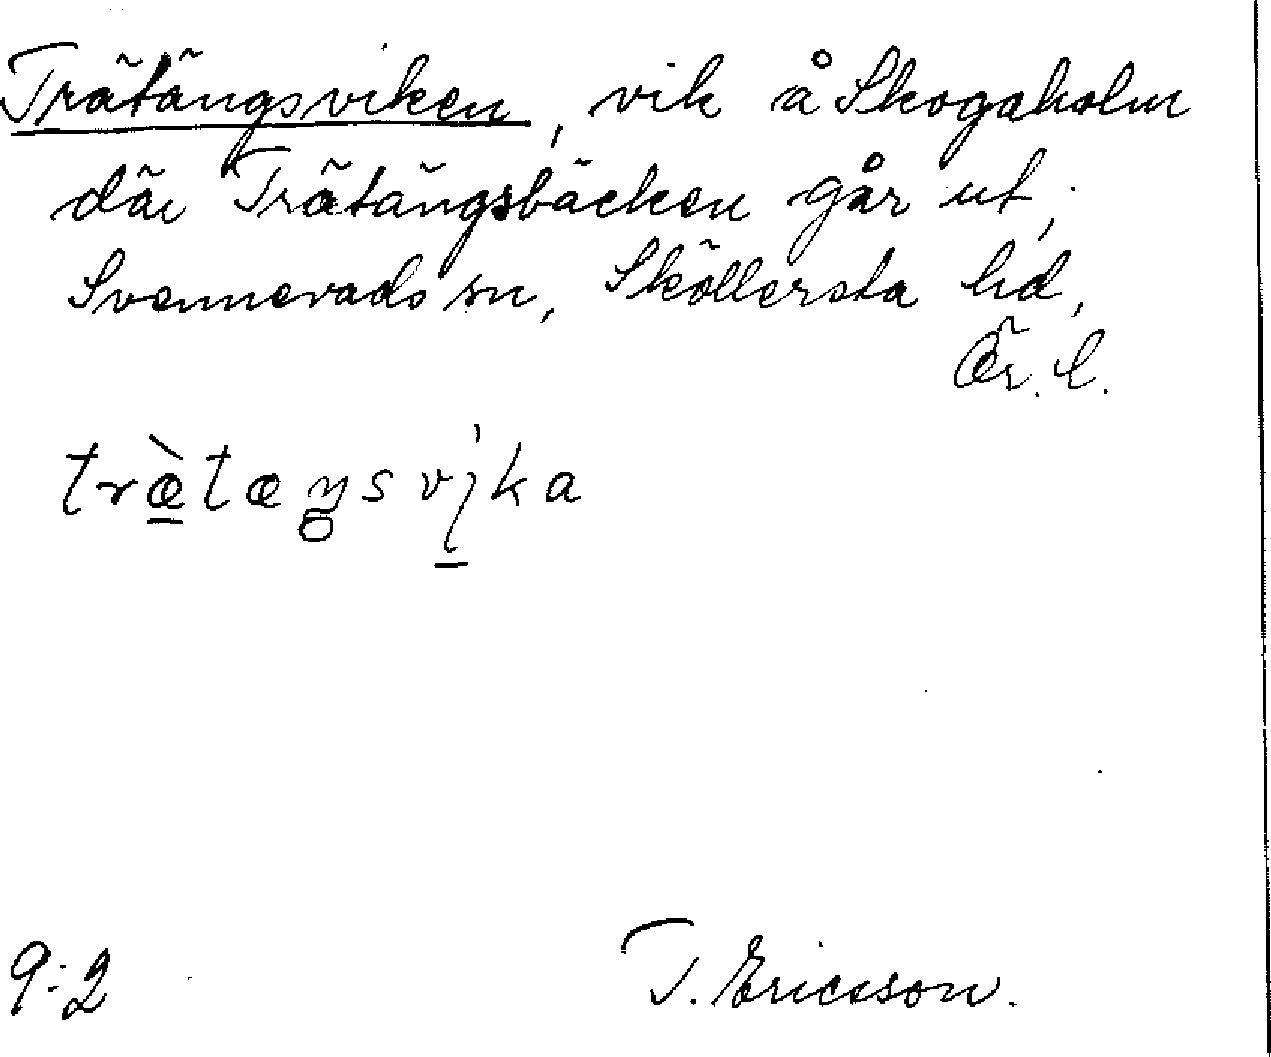 Trätängsviken, vik å Skogaholm
där Trätängsbäcken går ut,
Svennevads sn, Sköllersta hd,
Ör. l.
træ̱̀tæŋsvi̱ka
9:2
T. Ericsson.